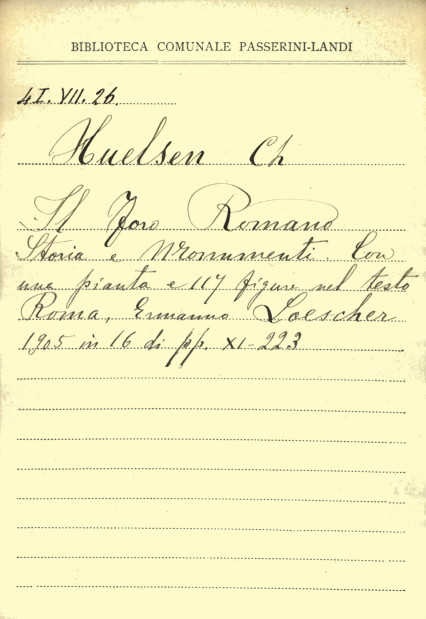 BIBLIOTECA COMUNALE PASSERINI-LANDI
4I.VII.26.
Huelsen Ch
Il Foro Romano
Storia e Monumenti. Con
una pianta e 117 figure nel testo
Roma, Ermanno Loescher
1905 in 16 di pp. XI-223